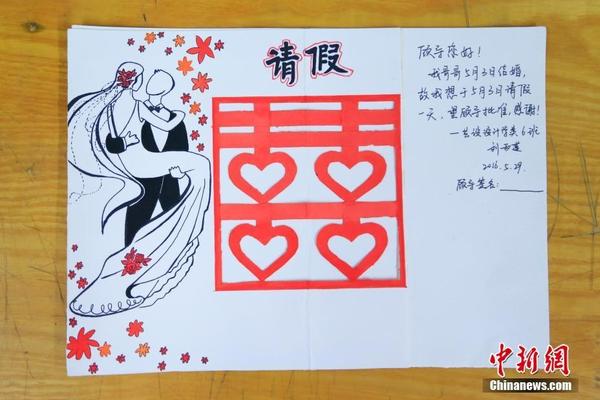 请假
顾导您好！
我哥哥5月3日结婚，
故我想于5月3日请假
一天，望顾导批准，感谢！
一艺设设计学类6班
2016.5.29.
顾导签名：
中新网
Chinanews.com